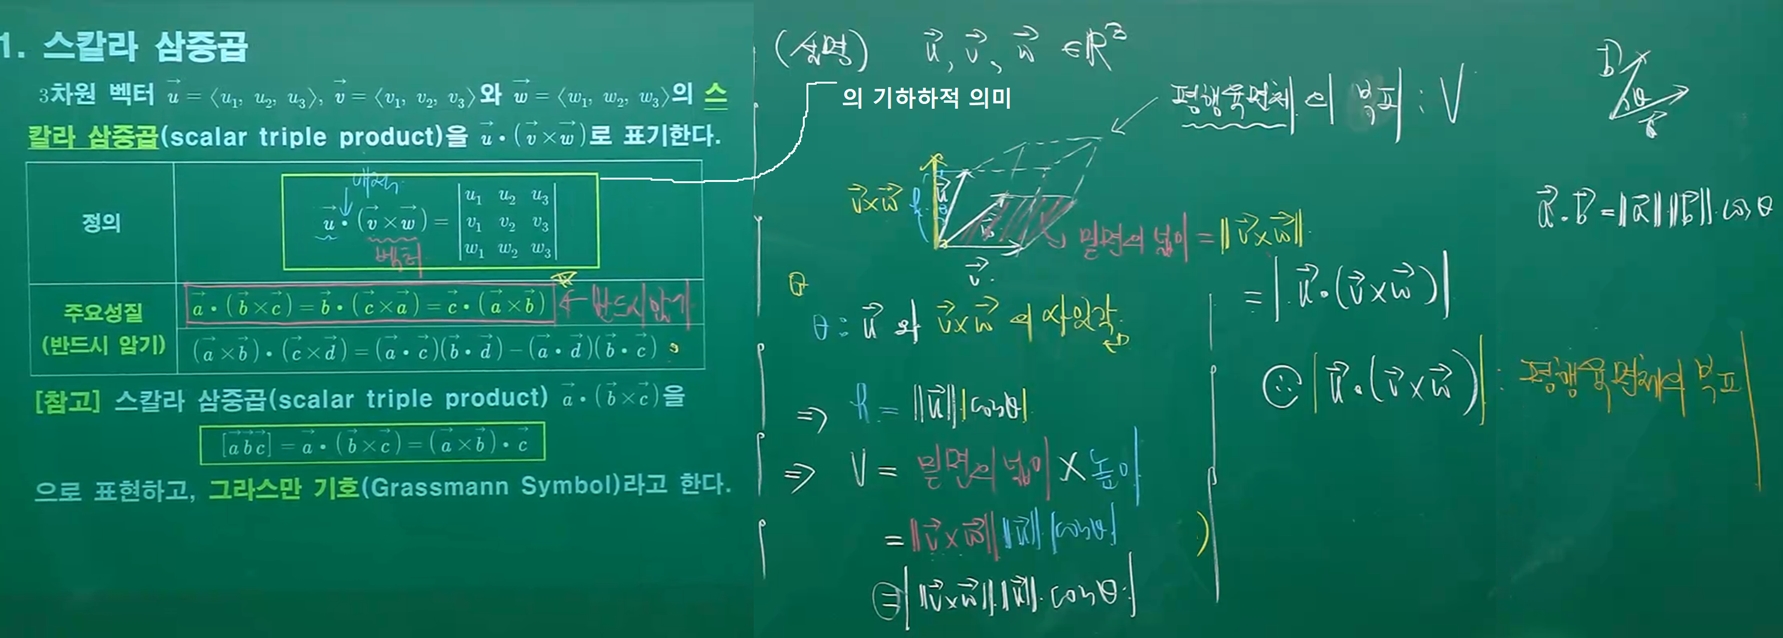 1. 스칼라 삼중곱
3차원 벡터 u⃗ = ⟨u₁, u₂, u₃⟩, v⃗ = ⟨v₁, v₂, v₃⟩와 w⃗ = ⟨w₁, w₂, w₃⟩의 스
칼라 삼중곱(scalar triple product)을 u⃗ • (v⃗ × w⃗)로 표기한다.
정의
내적
u⃗ • (v⃗ × w⃗) = | u₁ u₂ u₃ |
| v₁ v₂ v₃ |
| w₁ w₂ w₃ |
벡터
주요성질
(반드시 암기)
a⃗ • (b⃗ × c⃗) = b⃗ • (c⃗ × a⃗) = c⃗ • (a⃗ × b⃗) ← 반드시 암기
(a⃗ × b⃗) • (c⃗ × d⃗) = (a⃗ • c⃗)(b⃗ • d⃗) − (a⃗ • d⃗)(b⃗ • c⃗)
[참고] 스칼라 삼중곱(scalar triple product) a⃗ • (b⃗ × c⃗)을
[a⃗b⃗c⃗] = a⃗ • (b⃗ × c⃗) = (a⃗ × b⃗) • c⃗
으로 표현하고, 그라스만 기호(Grassmann Symbol)라고 한다.
(설명) u⃗, v⃗, w⃗ ∈ ℝ³
의 기하하적 의미
평행육면체의 부피 : V
v⃗×w⃗
h
θ
u⃗
w⃗
v⃗
밑면의 넓이 = ‖v⃗×w⃗‖
θ : u⃗ 와 v⃗×w⃗ 의 사잇각
⇒ h = ‖u⃗‖|cosθ|
⇒ V = 밑면의 넓이 × 높이
= ‖v⃗×w⃗‖‖u⃗‖·|cosθ|
= |‖v⃗×w⃗‖·‖u⃗‖·cosθ|
= |u⃗•(v⃗×w⃗)|
∴ |u⃗•(v⃗×w⃗)| : 평행육면체의 부피
b⃗
θ
a⃗
a⃗·b⃗ = ‖a⃗‖‖b⃗‖·cosθ